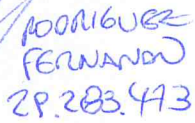 RODRIGUEZ
FERNANDO
29.283.473